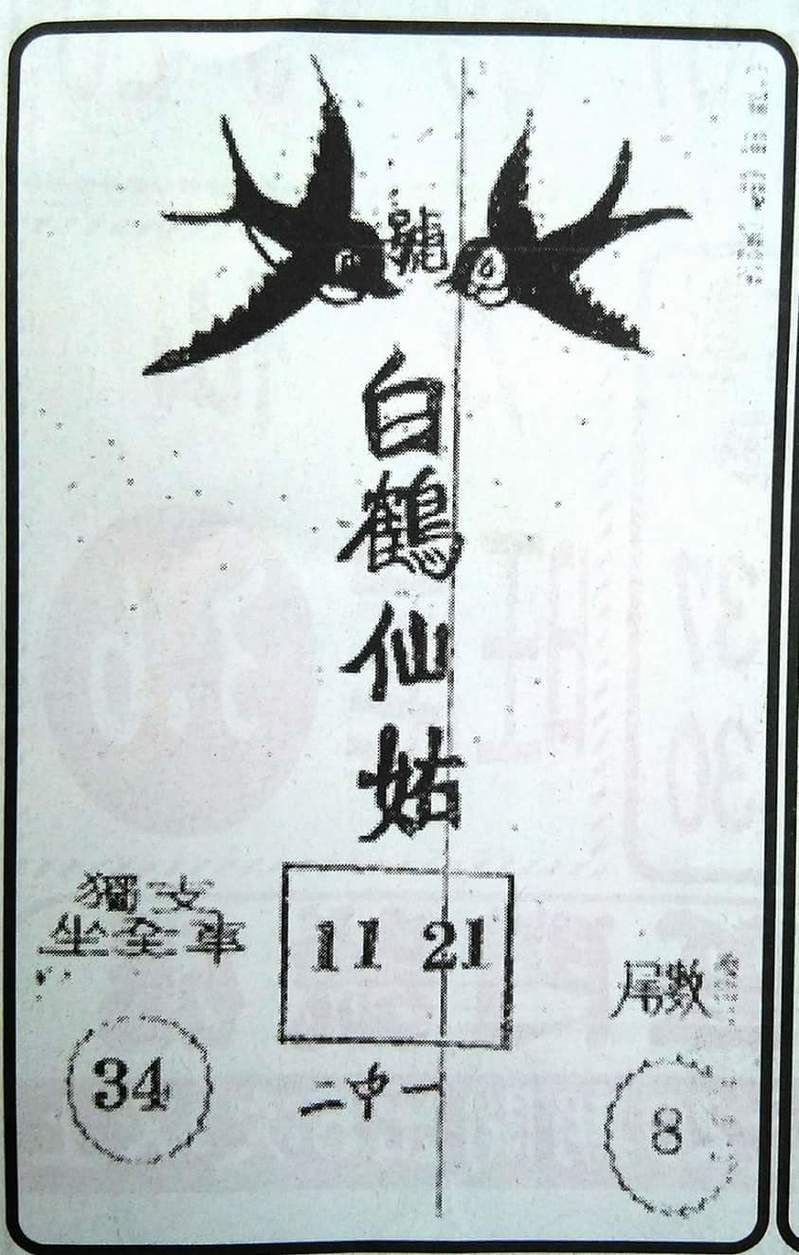 號
白鶴仙姑
獨支
坐全車
34
11 21
二中一
尾數
8